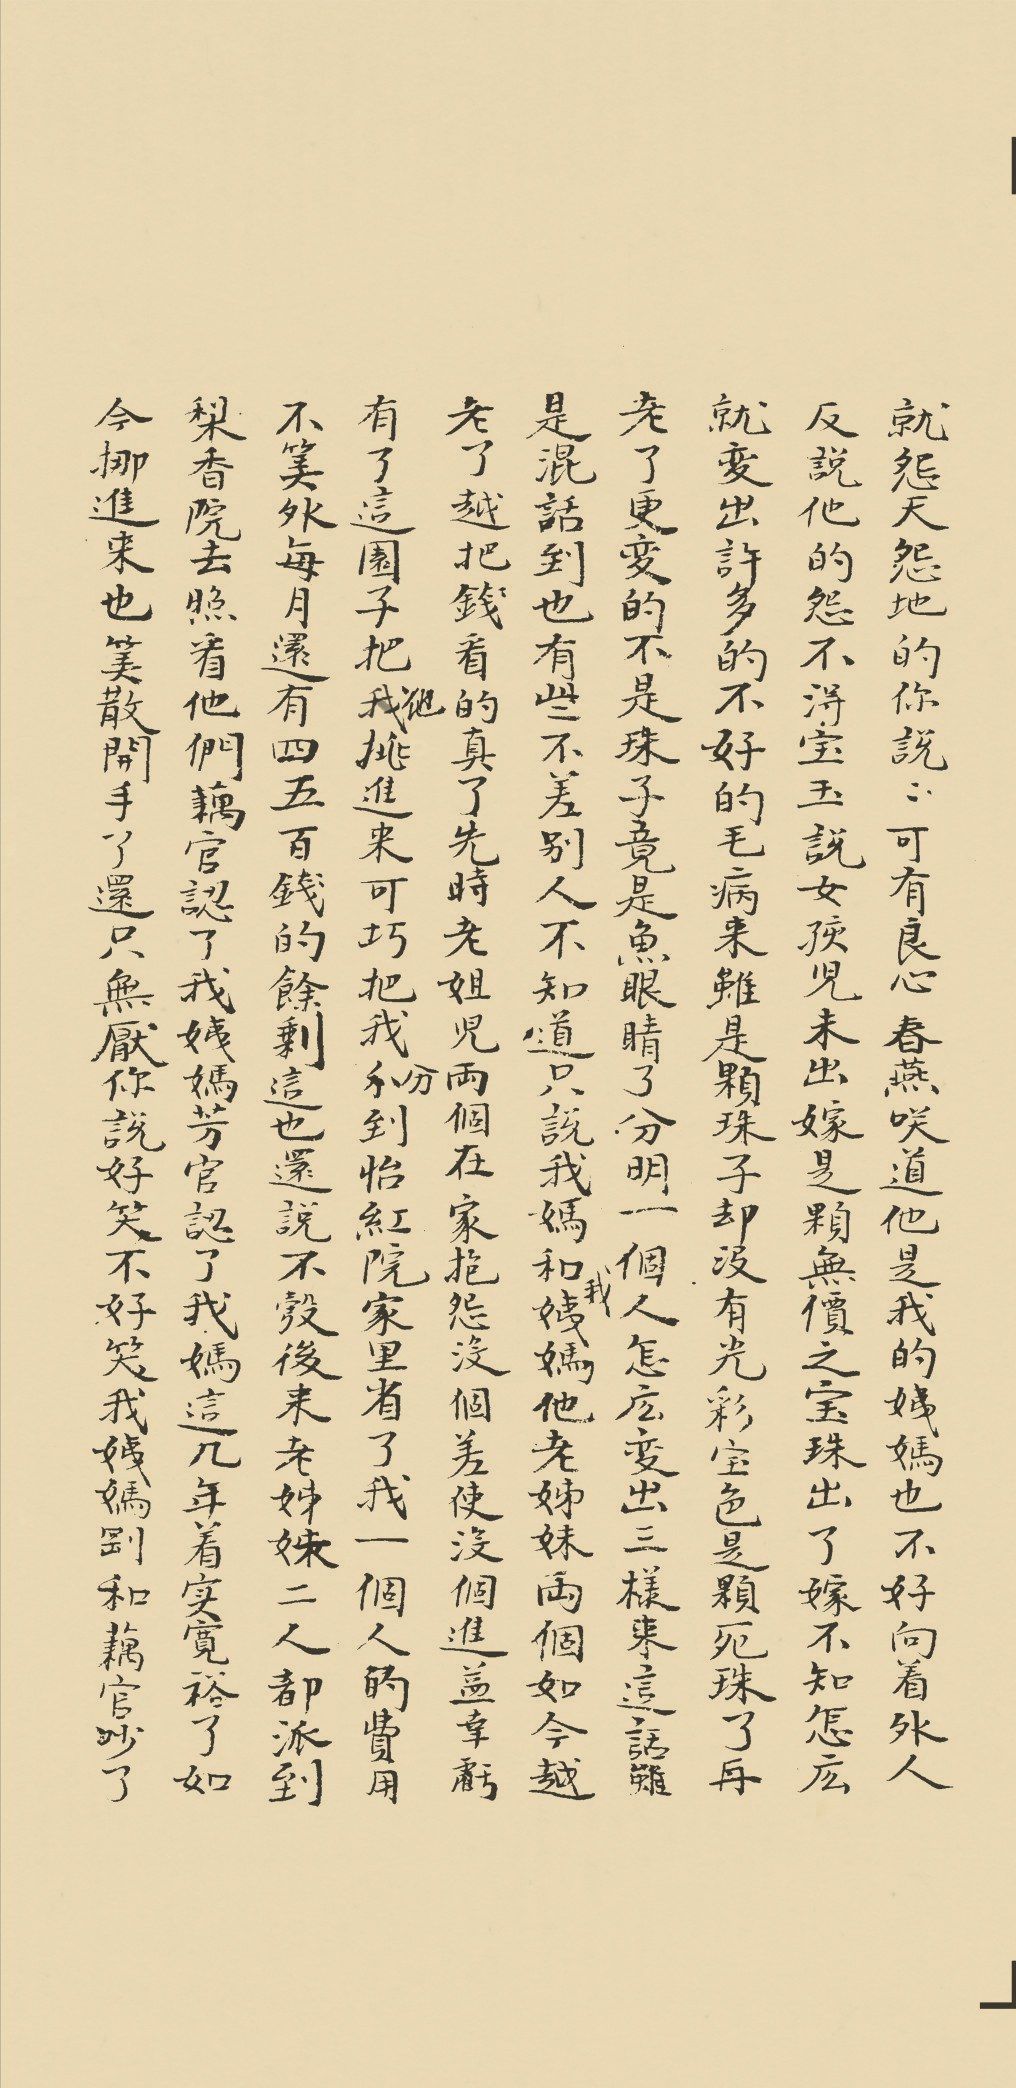 就怨天怨地的你說〻可有良心春燕咲道他是我的姨媽也不好向着外人
反說他的怨不淂宝玉說女孩児未出嫁是顆無價之宝珠出了嫁不知怎庅
就变出許多的不好的毛病来雖是顆珠子却没有光彩宝色是顆死珠了再
老了更变的不是珠子竟是魚眼睛了分明一個人怎庅变出三様来這話雖
是混話到也有些不差别人不知道只說我媽和我姨媽他老姊妹両個如今越
老了越把錢看的真了先時老姐児両個在家抱怨没個差使没個進益幸虧
有了這園子把我他挑進来可巧把我和分到怡紅院家里省了我一個人的費用
不筭外每月還有四五百錢的餘剩這也還說不彀後来老姊妹二人都派到
梨香院去照看他們藕官認了我姨媽芳官認了我媽這几年着实寛裕了如
今挪進来也筭散開手了還只無厭你說好笑不好笑我姨媽剛和藕官吵了